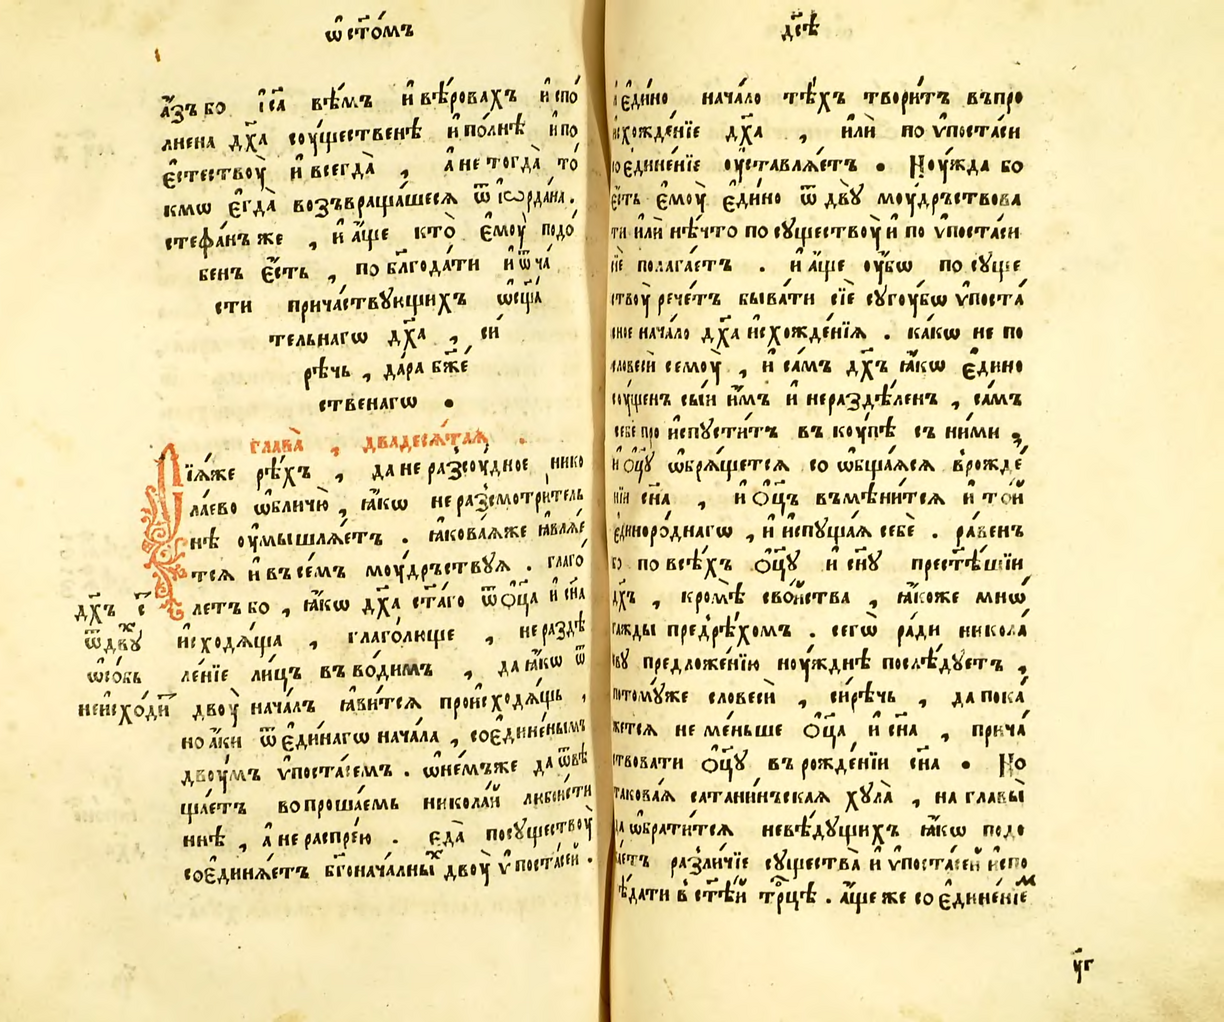 ѡ҆ ст҃о́мъ
а҆́зъ бо і҆са вѣ́мъ и҆ вѣ́ровахъ и҆ спо́
лнена дх҃а соу́щественѣ и҆ по́лнѣ и҆ по
є҆стествоу̀ и҆ всегда̀ , а҆ не тогда̀ то́
кмѡ є҆гда̀ возъвраща́шеся ѿ і҆ѻрда́на .
стефа́нъ же , и҆ а҆́ще кто̀ є҆моу̀ подо́
бенъ є҆́сть , по блг҃ода́ти и҆ ѿ ча́
сти прича́ствующихъ ѡ҆сщ҃а́
тельнагѡ дх҃а , си́
рѣчь , да́ра бж҃е́
ственагѡ .
глава̀ , двадеся́тая .
Ліѧ́же рѣ́хъ , да не разсоу́дное нико
ла́ево ѡ҆бличю̀ , ꙗ҆́кѡ не разсмотри́тель
нѣ оу҆мышлѧ́етъ . ꙗ҆кова́ѧже ꙗ҆влѧ́е
тсѧ и҆ въ се́мъ моу́дръствуѧ . глаго́
летъ бо , ꙗ҆́кѡ дх҃а ст҃а́го ѿ ѻ҆ц҃а̀ и҆ сн҃а
и҆сходѧ́ща , глаго́люще , не раздѣ
ле́нїе ли́цъ въво́димъ , да ꙗ҆́кѡ ѿ
двоу̀ нача́лъ ꙗ҆ви́тсѧ происходѧ́щь ,
но а҆́ки ѿ є҆ди́нагѡ нача́ла , соє҆дине́нымъ
двоу́мъ ѵ҆поста́семъ . ѡ҆ не́мъже да ѿвѣ
ща́етъ вопроша́емь никола́й любои́сти
ннѣ , а҆ не распре́ю . є҆да̀ посуществоу̀
соє҆динѧ́етъ бг҃онача́лныⷯ двоу̀ ѵ҆поста́сей .
дх҃ъ с҃
ѿ двⷯу
ѡ҆со́бь
неисхо́ди
дс҃ѣ
є҆ди́но нача́ло тѣ́хъ твори́тъ въ про
исхожде́нїе дх҃а , и҆лѝ по ѵ҆поста́си
соє҆дине́нїе оу҆ставлѧ́етъ . Ноу́жда бо
є҆́сть є҆моу̀ є҆ди́но ѿ двꙋ̀ моу́дръствова
ти и҆лѝ нѣ́что по сꙋществоу̀ и҆ по ѵ҆поста́си
сїѐ полага́етъ . и҆ а҆́ще оу҆́бѡ по сꙋще
ствоу̀ рече́тъ быва́ти сїѐ сꙋгоу́бѡ ѵ҆поста́
нача́ло дх҃а и҆схожде́нїѧ . ка́кѡ не по
словесѝ семоу̀ , и҆ са́мъ дх҃ъ ꙗ҆́кѡ є҆дино
соу́щенъ сы́й и҆̀мъ и҆ нераздѣ́ленъ , са́мъ
себе про и҆спꙋ́ститъ въ коу́пѣ съ ни́ми ,
и҆ ѻ҆ц҃ꙋ̀ ѡ҆брѧ́щетсѧ со ѡ҆бща́ѧсѧ в рожде́
нїи сн҃а , и҆ ѻ҆ц҃ъ въмѣни́тсѧ и҆ то́й
є҆диноро́днагѡ , и҆ и҆спꙋща́ѧ себѐ . ра́венъ
бо по всѣ́хъ ѻ҆ц҃ꙋ̀ и҆ сн҃ꙋ̀ прест҃ѣ́йшїи
дх҃ъ , кромѣ̀ сво́йства , ꙗ҆́коже мнѡ́
гажды предрѣ́хомъ . сегѡ̀ ра́ди никола́
евꙋ предложе́нїю ноу́жднѣ послѣ́дꙋетъ ,
потомꙋ́же словесѝ , си́рѣчь , да пока́
жетсѧ не ме́ньше ѻ҆ц҃а̀ и҆ сн҃а , прича́
ствовати ѻ҆ц҃ꙋ̀ въ рожде́нїи сн҃а . Но
такова́ѧ сатани́нъскаѧ хꙋла̀ , на главы̀
да ѡ҆брати́тсѧ невѣ́дꙋщихъ ꙗ҆́кѡ подо
ба́етъ разли́чїе сꙋщества̀ и҆ ѵ҆поста́сей и҆спо
вѣ́дати в ст҃ѣ́й трⷪ҇цѣ . а҆́ще же соє҆дине́нїеⷨ
у҆г